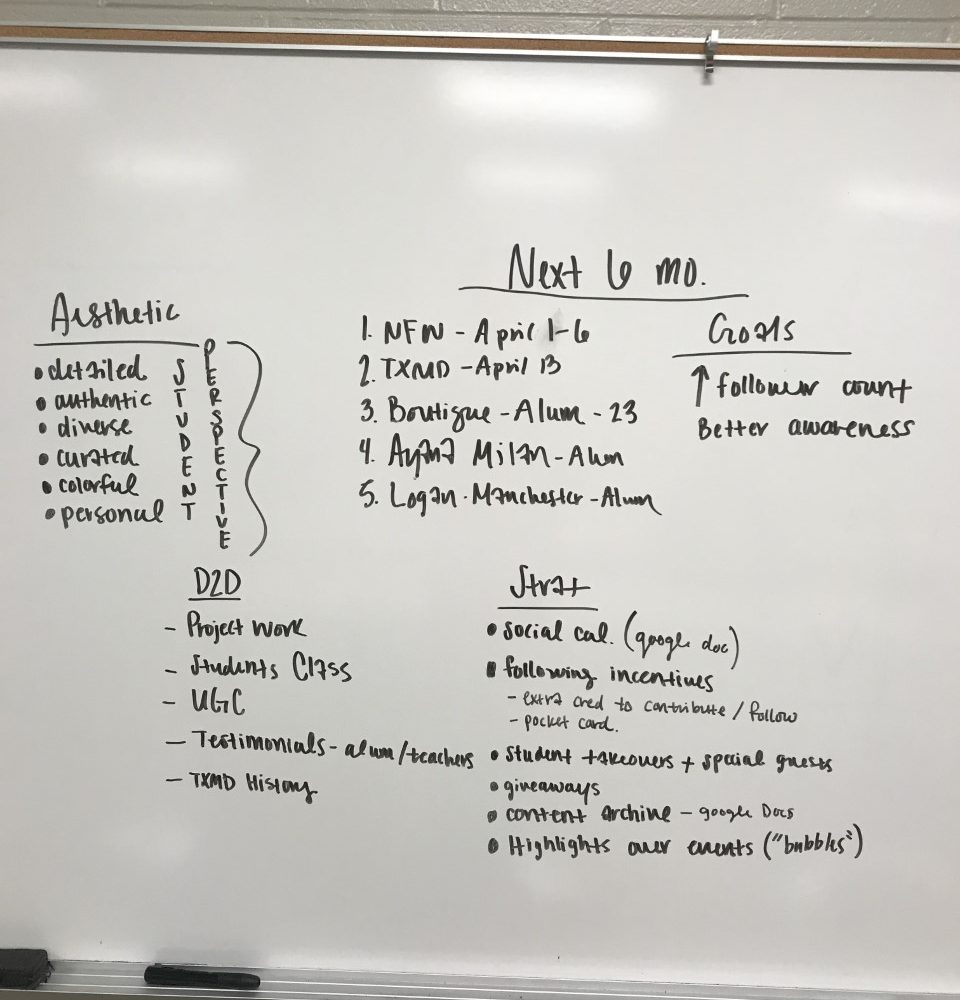 Next 6 mo.
Aesthetic
• detailed
• authentic
• diverse
• curated
• colorful
• personal
STUDENT
PERSPECTIVE
1. NFW - April 1-6
2. TXMD - April 13
3. Boutique - Alum - 23
4. Milan - Alum
5. Logan . Manchester - Alum
Goals
↑ follower count
Better awareness
D2D
- Project Work
- Students Class
- UGC
- Testimonials - alum/teachers
- TXMD History
Strat
• social cal. (google doc)
• following incentives
- extra cred to contribute / follow
- pocket card.
• student takeovers + special guests
• giveaways
• content archive - google Docs
• Highlights over events ("bubbles")